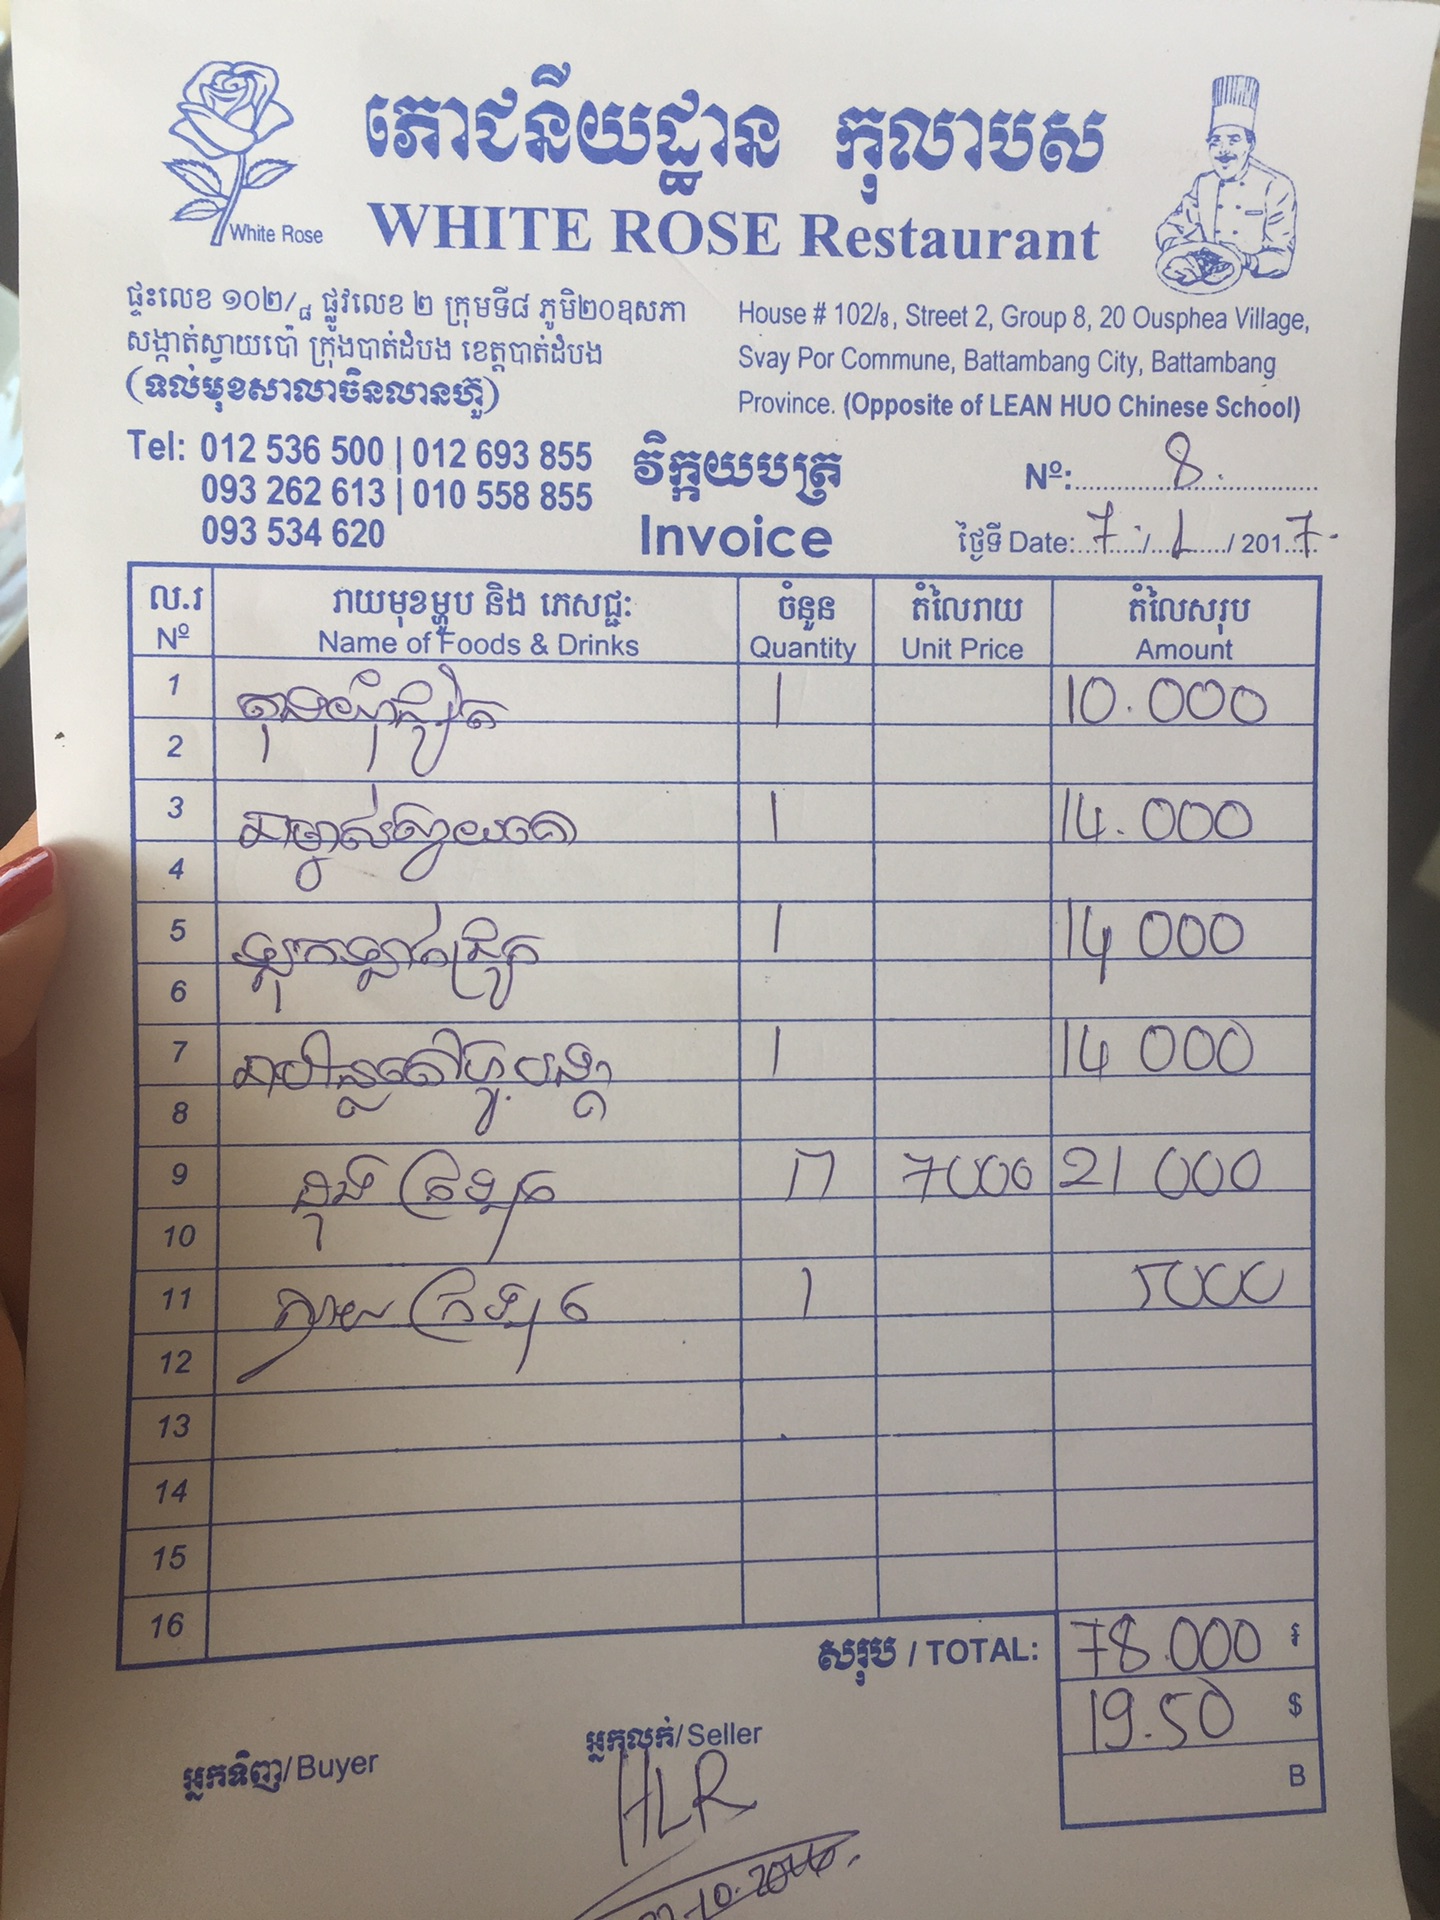 ភោជនីយដ្ឋាន កុលាបស
White Rose
WHITE ROSE Restaurant
ផ្ទះលេខ ១០២/៨ ផ្លូវលេខ ២ ក្រុមទី៨ ភូមិ២០ឧសភា
សង្កាត់ស្វាយប៉ោ ក្រុងបាត់ដំបង ខេត្តបាត់ដំបង
(ទល់មុខសាលាចិនលានហ៊ួ)
House # 102/8, Street 2, Group 8, 20 Ousphea Village,
Svay Por Commune, Battambang City, Battambang
Province. (Opposite of LEAN HUO Chinese School)
Tel: 012 536 500 | 012 693 855
093 262 613 | 010 558 855
093 534 620
វិក្កយបត្រ
Invoice
Nº: 8
ថ្ងៃទី Date: 7 / 1 / 2017
ល.រ រាយមុខម្ហូប និង ភេសជ្ជ: ចំនួន តំលៃរាយ តំលៃសរុប
Nº Name of Foods & Drinks Quantity Unit Price Amount
1 1 10.000
2
3 1 14.000
4
5 1 14 000
6
7 1 14 000
8
9 7000 21 000
10
11 1 5000
12
13
14
15
16
សរុប / TOTAL: 78.000 ៛
19.50 $
B
អ្នកទិញ/Buyer
អ្នកលក់/Seller
HLR